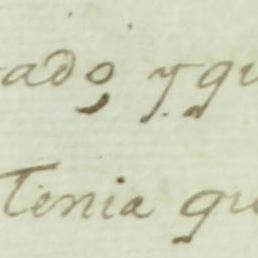 ado, y qu
Tenia qu